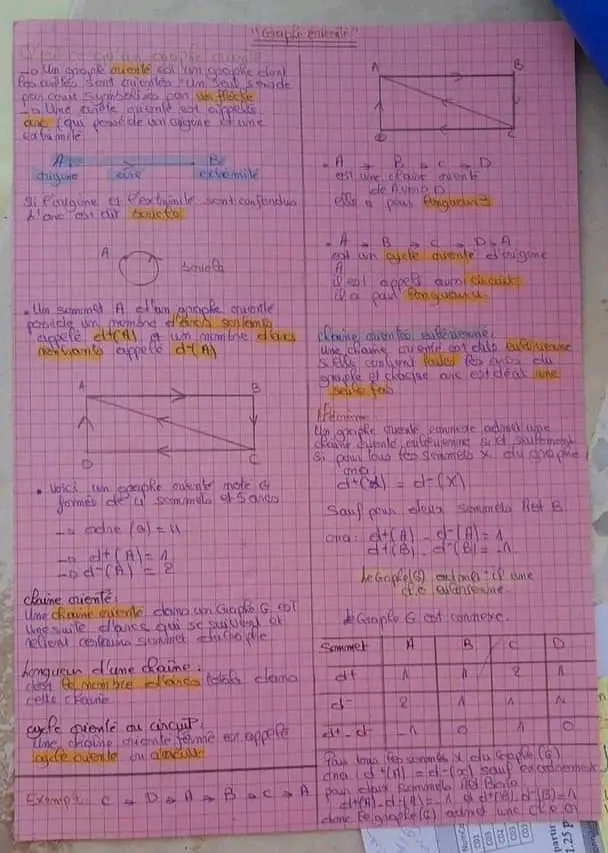 "Graphe orienté"
→ Un graphe orienté est un graphe dont
les arêtes sont orientées "Un seul sens de
parcours symbolisés par un flèche
→ Une arête orienté est appelée
arc (qui possède un origine et une
extrémité
A B
origine arc extrémité
Si l'origine et l'extrémité sont confondus
L'arc est dit boucle
A boucle
• Un sommet A d'un graphe orienté
possède un nombre d'arcs sortants
appelé d+(A) et un nombre d'arcs
rentrants appelé d-(A)
A B
D C
• Voici un graphe orienté noté G
formés de 4 sommets et 5 arcs
→ ordre (G) = 4
→ d+(A) = 1
→ d-(A) = 2
chaine orienté:
Une chaine orienté dans un Graphe G est
Une suite d'arcs qui se suivent et
relient certains sommet du Graphe
Longueur d'une chaîne:
c'est le nombre d'arcs totals dans
cette chaine
cycle orienté ou circuit:
Une chaine orienté fermée est appelé
cycle orienté ou circuit
Exemple C → D → A → B → C → A
A B
D C
• A → B → C → D
est une chaine orienté
de A vers D
elle a pour longueur 3
• A → B → C → D → A
est un cycle orienté d'origine
A
il est appelé aussi circuit
il a pour longueur 4
chaine orientée eulérienne:
Une chaine orienté est dite eulérienne
si elle contient toutes les arcs du
graphe et chaque arc est une
seule fois
Théorème
Un graphe orienté connexe admet une
chaine orienté eulérienne si et seulement
si pour tous les sommets X du graphe
ona:
d+(X) = d-(X)
Sauf pour deux sommets A et B
ona: d+(A) - d-(A) = 1
d+(B) - d-(B) = -1
Le Graphe(G) admet-il une
c.o eulérienne
Le Graphe G est connexe
Sommet A B C D
d+ 1 1 2 1
d- 2 1 1 1
d+-d- -1 0 1 0
Pour tous les sommets x du Graphe (G)
ona: d+(x) = d-(x) sauf
pour deux sommets A et
d+(A)-d-(A)=-1 et d+(B)-d-(B)=1
donc le graphe(G) admet une